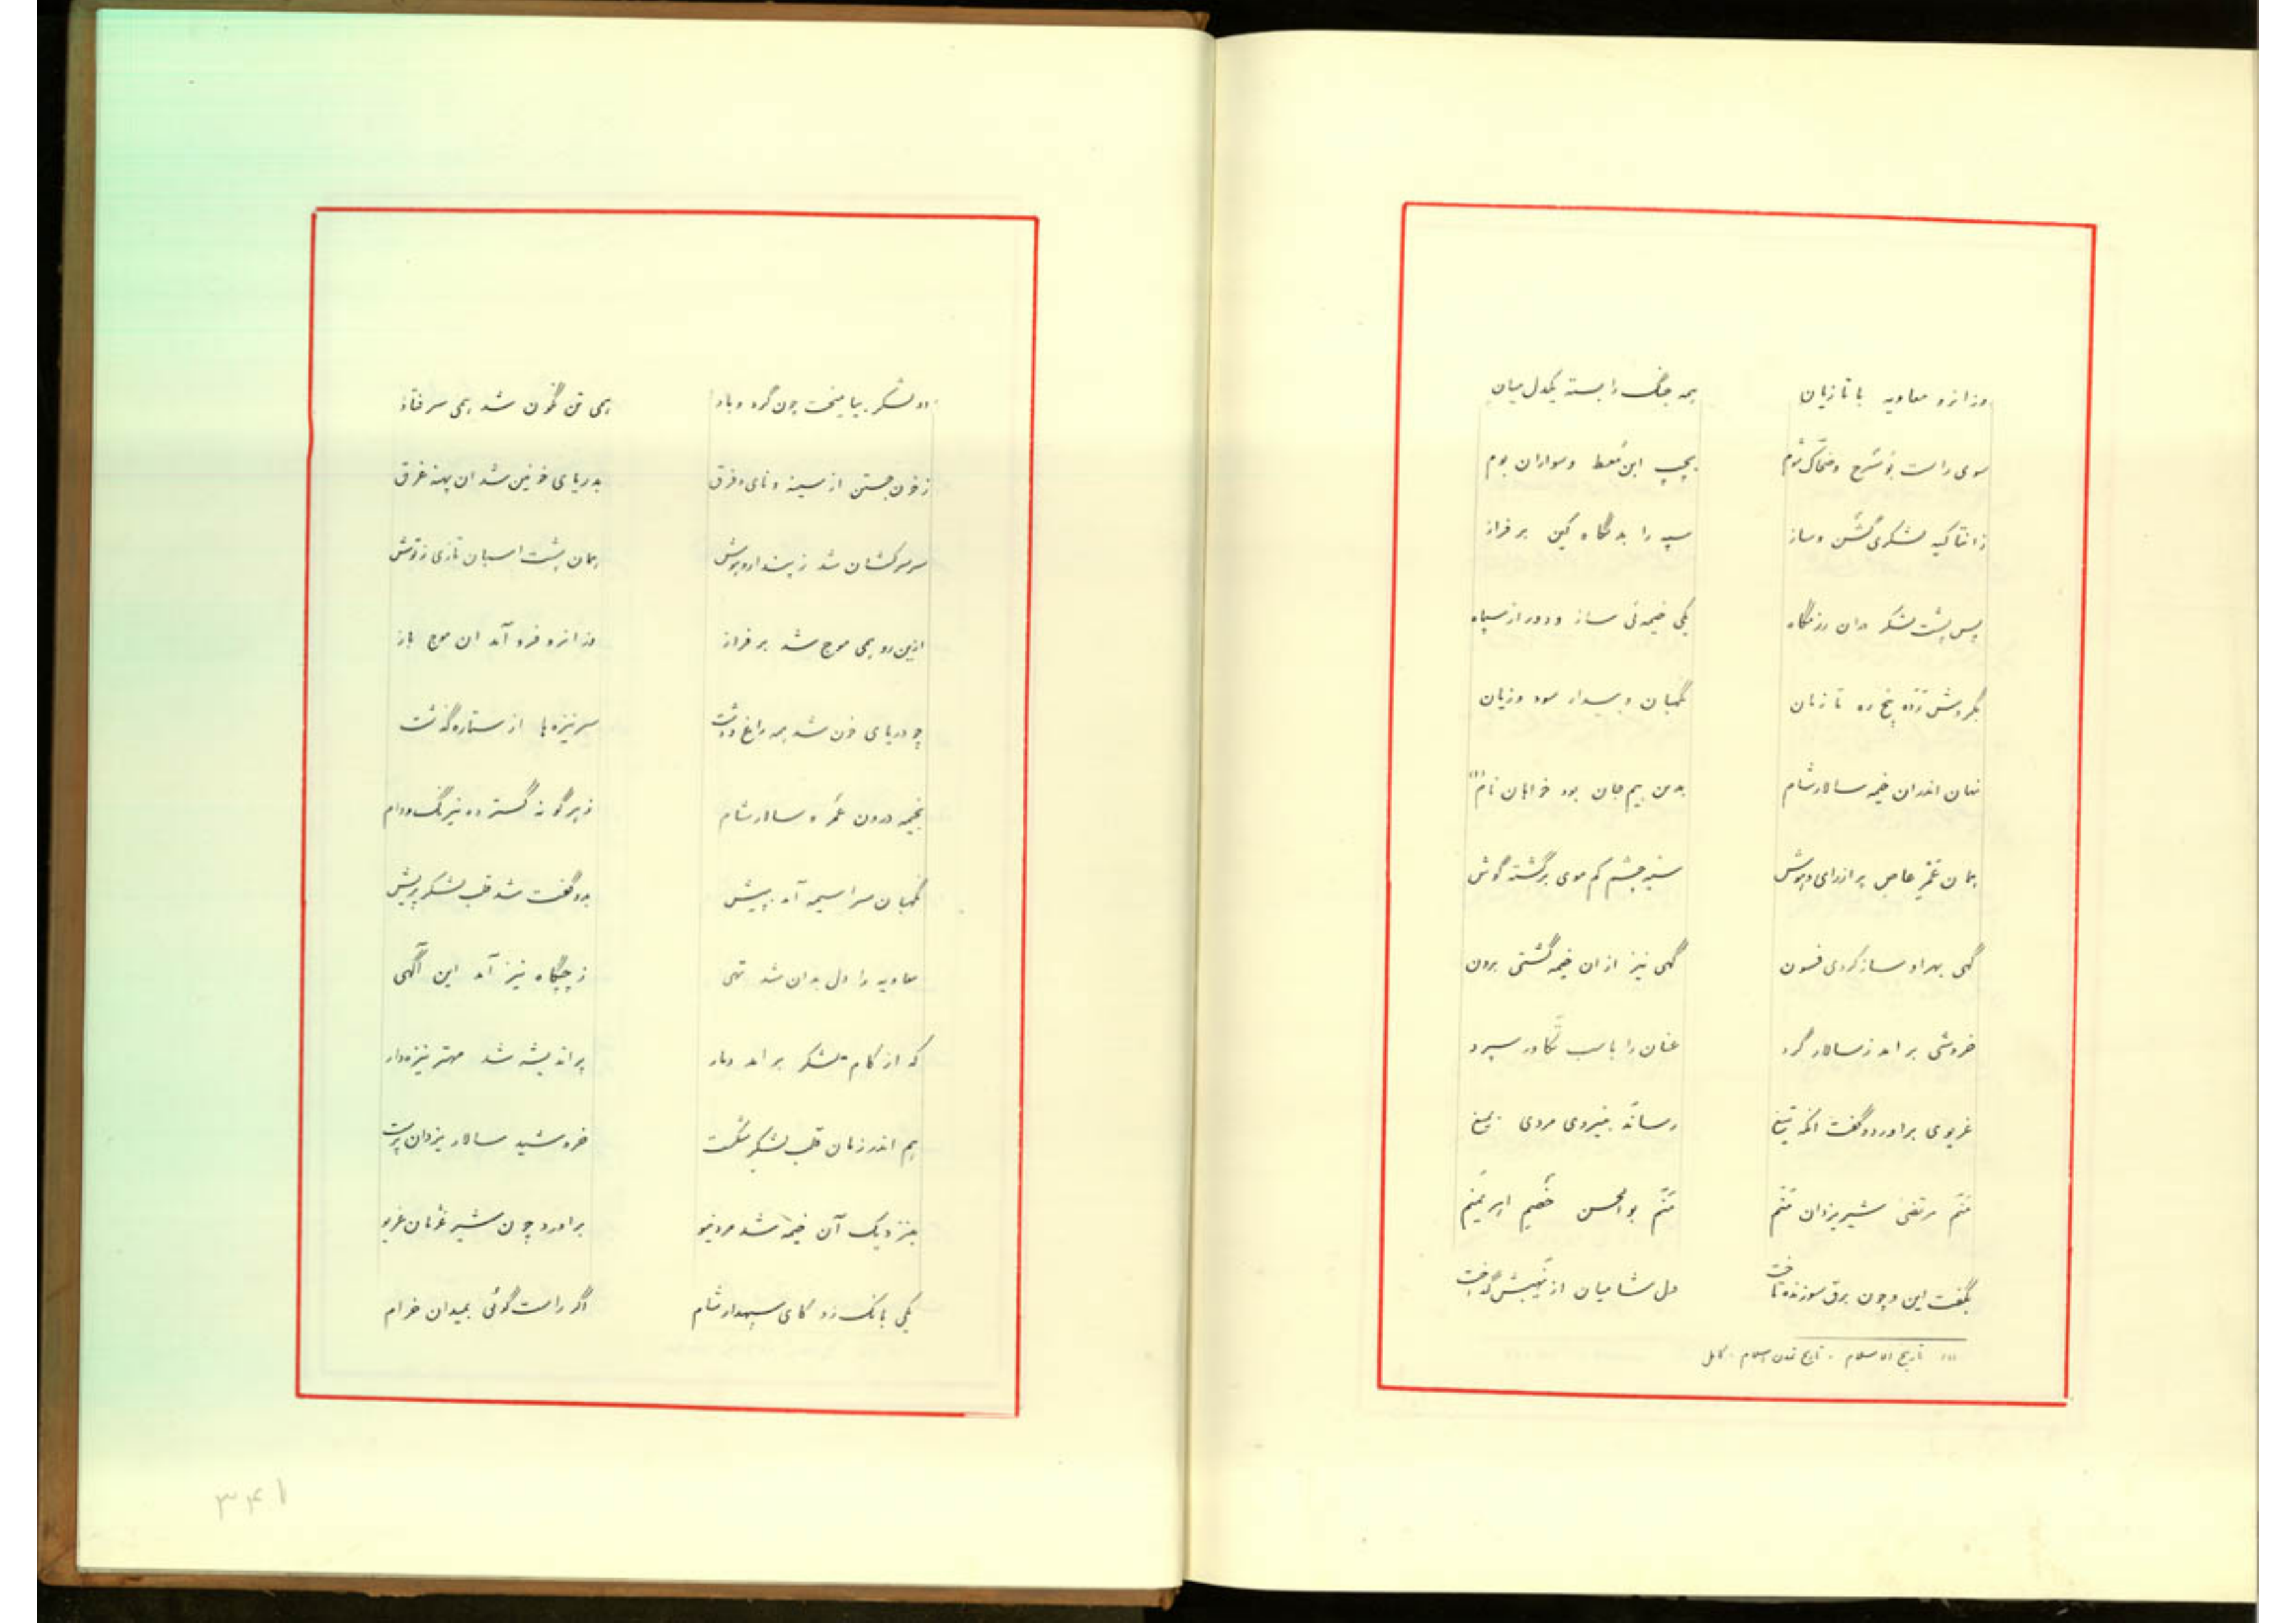 وزانرو معاویه با تازیان همه جنگ را بسته یکدل میان
سوی راست بوشرح وضحاک شوم بچپ ابن معط وسواران بوم
زانتاکیه لشکری گشن وساز سپه را بدگاه کین برفراز
پس پشت لشکر دران رزمگاه یکی خیمه‌ئی ساز ودور از سپاه
بگردش زده پنج ره تازیان نگهبان وبیدار سود وزیان
نهان اندران خیمه سالار شام بدس بیم جان بود خواهان نام (۱)
همان عمر عاص پر از رای وهوش سیه چشم کم موی برگشته گوش
گهی بهر او ساز کردی فسون گهی نیز ازان خیمه گشتی برون
خروشی برامد ز سالار گرد عنان را باسب تکاور سپرد
غریوی براورد وگفت آنکه تیغ رساند بنیروی مردی بمیغ
منم مرتضی شیر یزدان منم منم بوالحسن خصم اهریمنم
بگفت این وچون برق سوزنده تاخت دل شامیان از نهیبش گداخت
(۱) تاریخ الاسلام - تاریخ تمدن اسلام - کامل
دو لشکر بیامیخت چون گرد وباد همی تن نگون شد همی سر فتاد
زخون جستن از سینه ونای وفرق بدریای خونین شد ان پهنه غرق
سر سرکشان شد ز پندار وهوش همان پشت اسبان تازی زتوش
ازین رو همی موج شد برفراز وزانرو فرود آمد ان موج باز
چو دریای خون شد همه راغ ودشت سر نیزه‌ها از ستاره گذشت
بخیمه درون عمر و سالار شام ز هر گونه گسترده نیرنگ ودام
نگهبان سراسیمه آمد بپیش بدو گفت شد قلب لشکر پریش
معاویه را دل بدان شد تهی ز چپگاه نیز آمد این آگهی
که از کام لشکر برامد دمار پر اندیشه شد مهتر نیزه‌دار
هم اندر زمان قلب لشکر شکست خروشید سالار یزدان پرست
بنزدیک آن خیمه شد مرد نیو براورد چون شیر غژمان غریو
یکی بانگ زد کای سپهدار شام اگر راست گوئی بمیدان خرام
۳۴۱